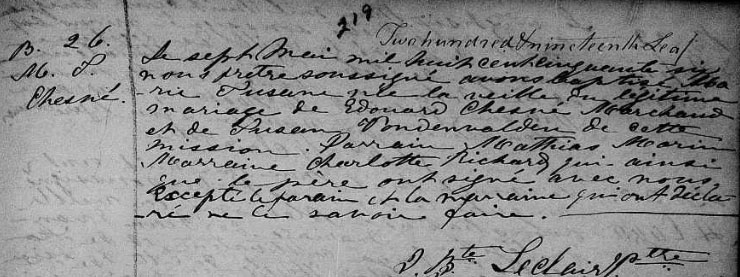 219
Two hundred & nineteenth Leaf
B. 26.
M. S.
Chesné.
Le sept Mai mil huit cent cinquante six
nous prêtre soussigné avons baptisé Ma
rie Susane née la veille du légitime
mariage de Edouard Chesné Marchand
et de Susan Vondenvalden de cette
mission. Parrain Mathias Morin
Marraine Charlotte Richard qui ainsi
que le père ont signé avec nous
Excepté le parain et la marraine qui ont décla
ré ne le savoir faire.
J. Bte Leclair Ptre